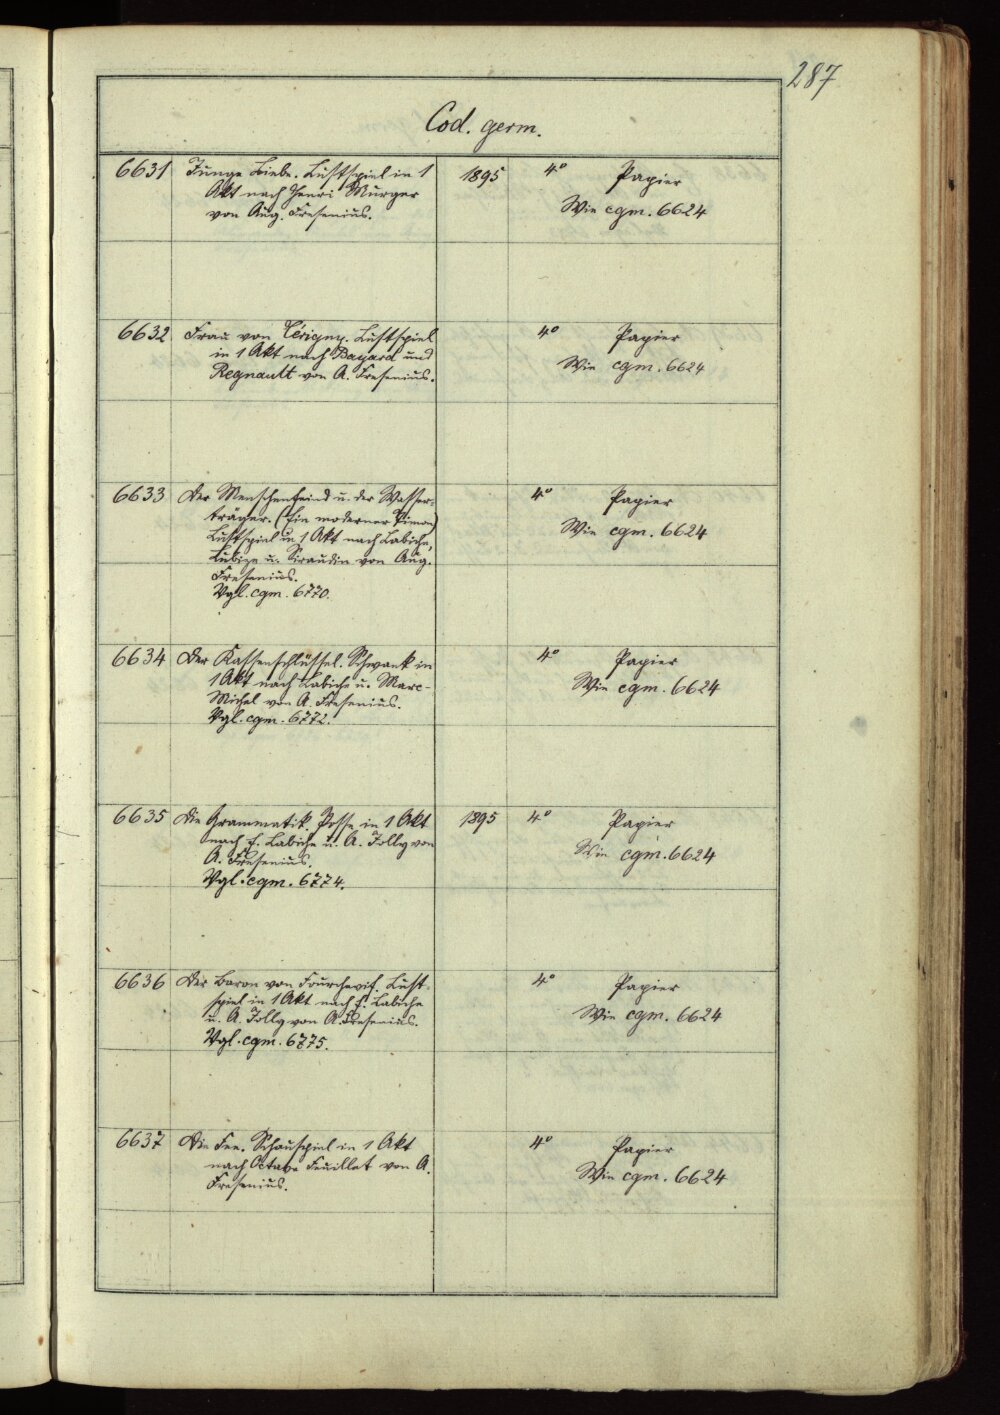 287
Cod. germ.
6631 Junge Liebe. Lustspiel in 1 1895 4° Papier
Akt nach Henri Murger Wie cgm. 6624
von Aug. Fresenius.
6632 Frau von Cérigny. Lustspiel 4° Papier
in 1 Akt nach Bayard und Wie cgm. 6624
Regnault von A. Fresenius.
6633 Der Menschenfeind u. der Wasser- 4° Papier
träger. (Ein moderner Timon) Wie cgm. 6624
Lustspiel in 1 Akt nach Labiche,
Lubize u. Siraudin von Aug.
Fresenius.
Vgl. cgm. 6770.
6634 Der Kassenschlüssel. Schwank in 4° Papier
1 Akt nach Labiche u. Marc- Wie cgm. 6624
Michel von A. Fresenius.
Vgl. cgm. 6772.
6635 Die Grammatik. Posse in 1 Akt 1895 4° Papier
nach E. Labiche u. A. Jolly von Wie cgm. 6624
A. Fresenius.
Vgl. cgm. 6774.
6636 Der Baron von Fourchevif. Lust- 4° Papier
spiel in 1 Akt nach E. Labiche Wie cgm. 6624
u. A. Jolly von A. Fresenius.
Vgl. cgm. 6775.
6637 Die Fee. Schauspiel in 1 Akt 4° Papier
nach Octave Feuillet von A. Wie cgm. 6624
Fresenius.